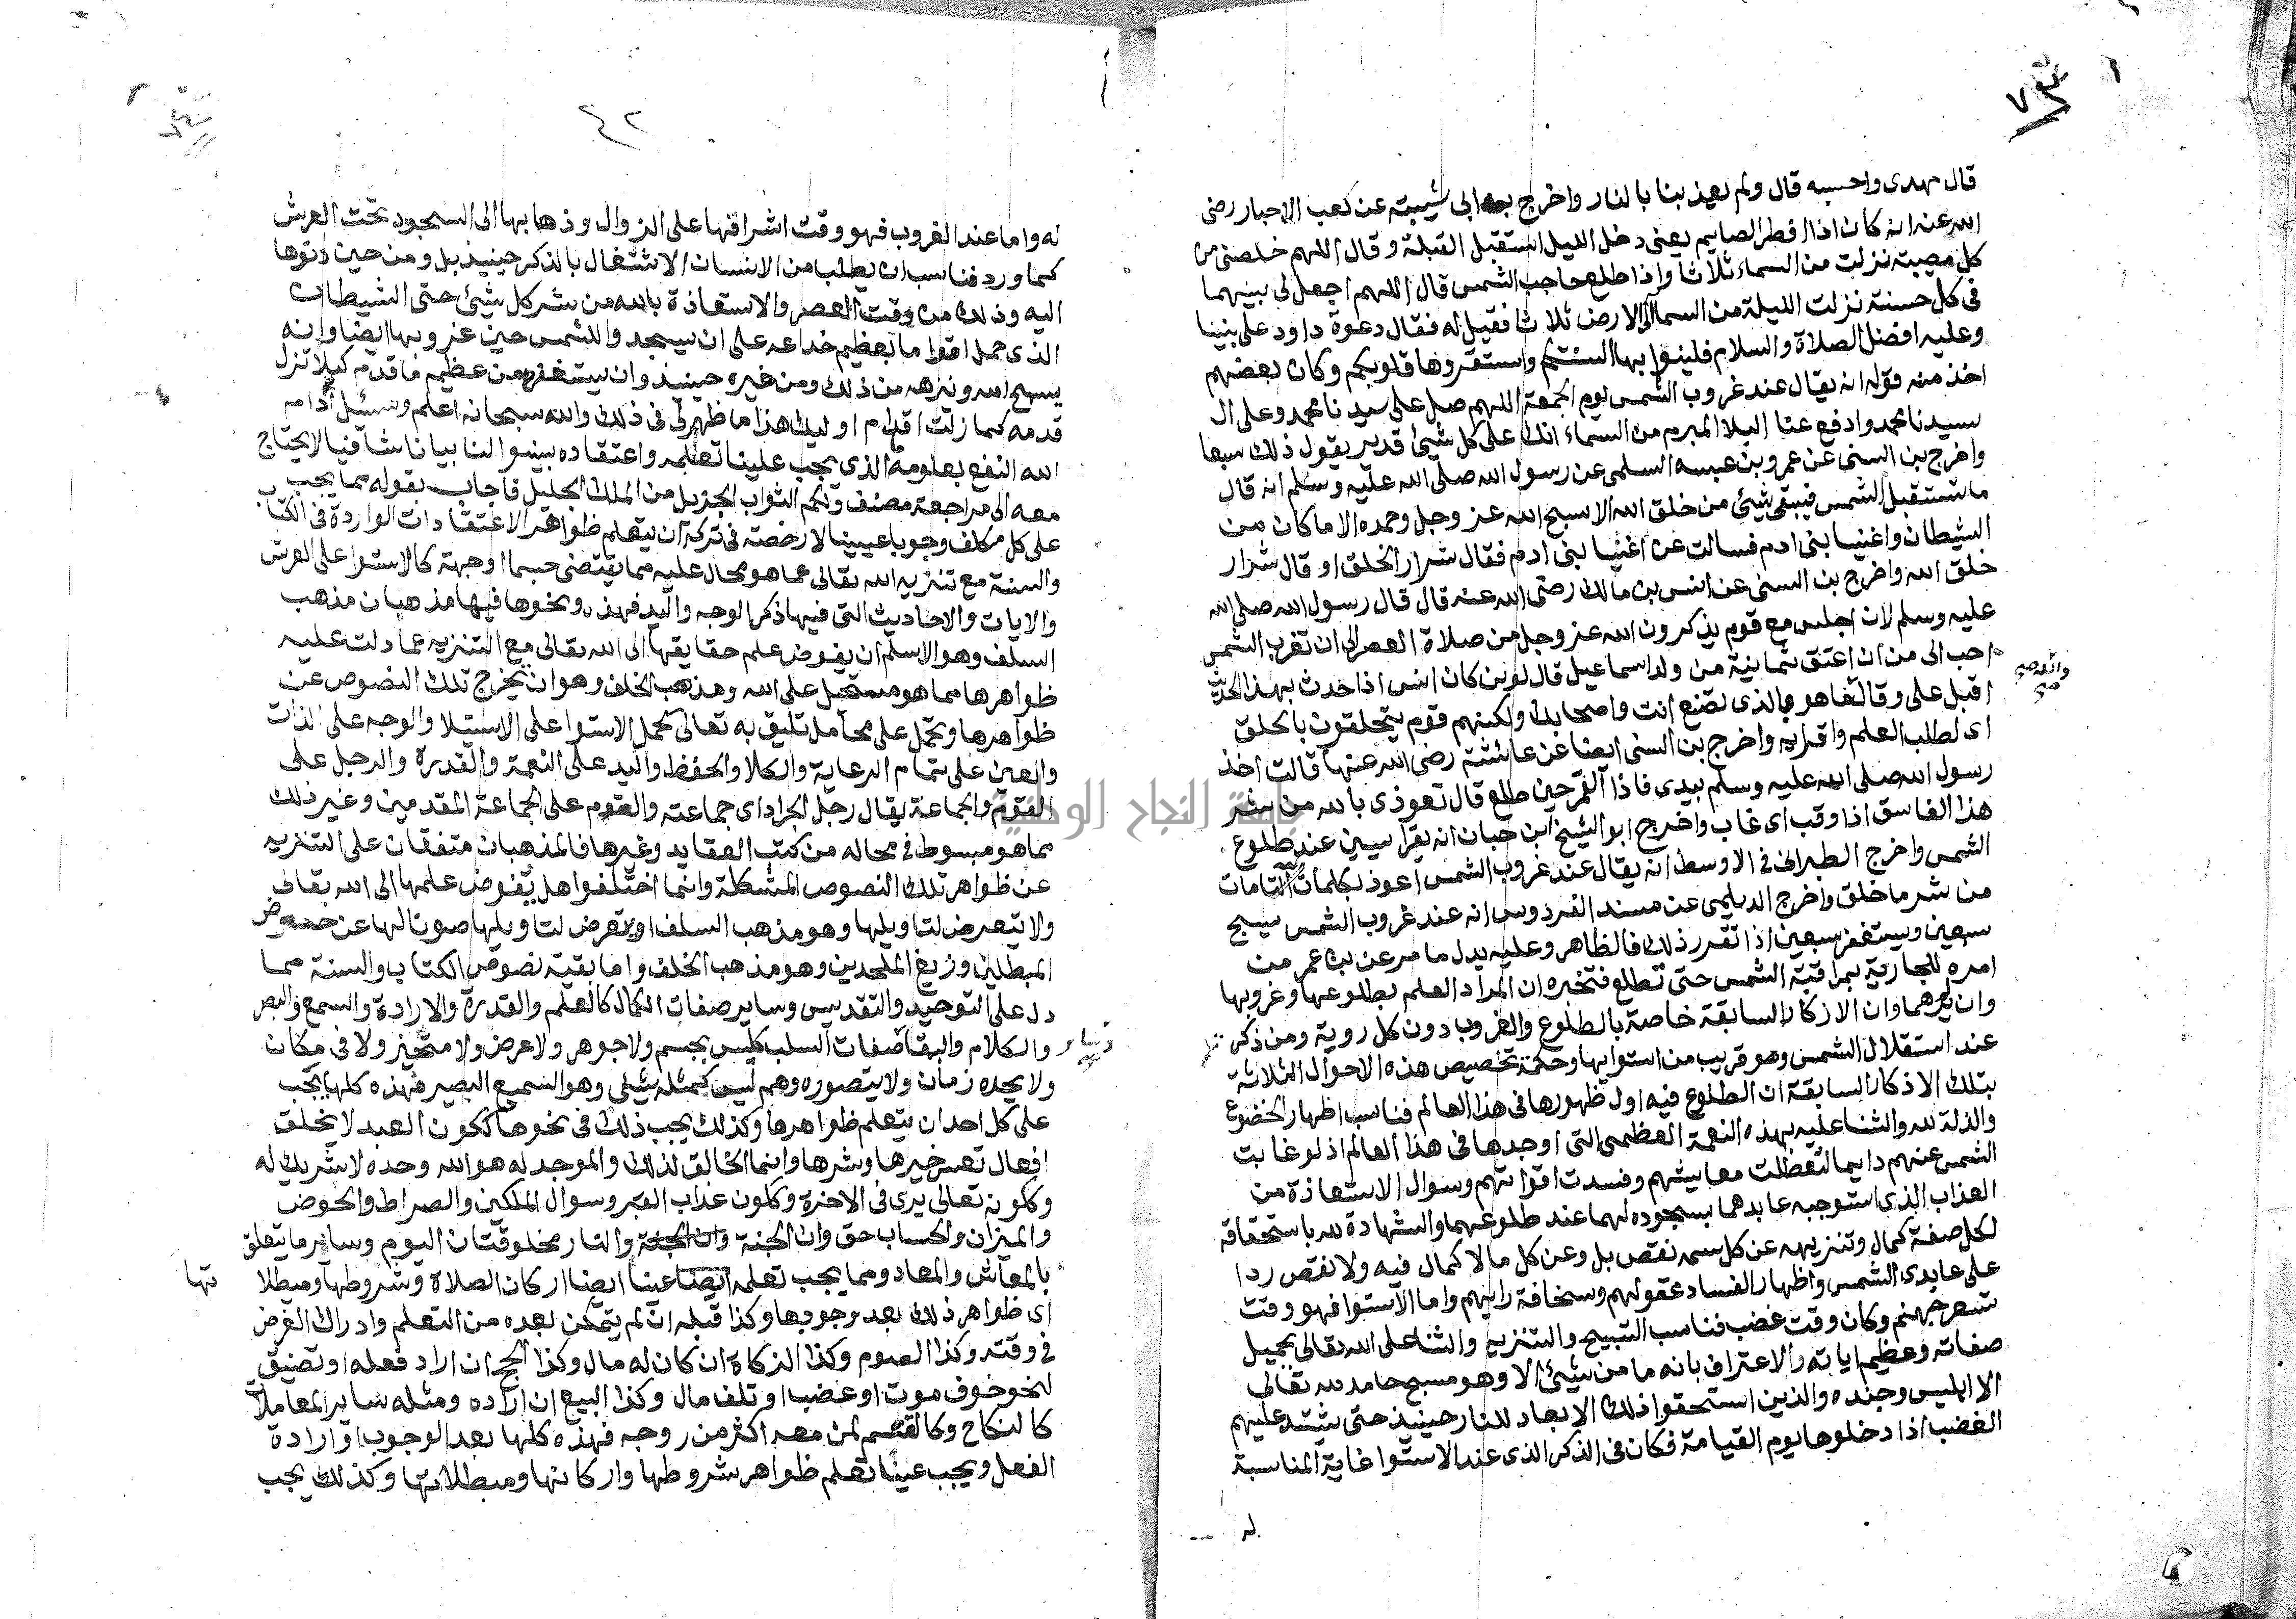 قال مهدى واحسبه قال ولم يعذبنا بالنار واخرج ابى شيبة عن كعب الاحبار رضى
الله عنه انه كان اذا افطر الصايم يعنى دخل الليل استقبل القبلة وقال اللهم خلصنى من
كل مصيبة نزلت من السماء ثلاثا واذا طلع حاجب الشمس قال اللهم اجعل لى بينهما
فى كل حسنة نزلت الليلة من السما الى الارض ثلاثا فقيل له فقال دعوة داود على نبينا
وعليه افضل الصلاة والسلام فلينوا بها السنتكم واستقروها قلوبكم وكان بعضهم
اخذ منه قوله انه يقال عند غروب الشمس يوم الجمعة اللهم صل على سيدنا محمد وعلى ال
سيدنا محمد وادفع عنا البلا المبرم من السماء انك على كل شيئ قدير يقول ذلك سبعا
واخرج بن السنى عن عمرو بن عبسه السلمى عن رسول الله صلى الله عليه وسلم انه قال
ما تستقبل الشمس فيبقى شيئ من خلق الله الا سبح الله عز وجل وحمده الا ما كان من
الشيطان واغنيا بنى ادم فسالت عن اغنيا بنى ادم فقال شرار الخلق او قال شرار
خلق الله واخرج بن السنى عن انس بن مالك رضى الله عنه قال قال رسول الله صلى الله
عليه وسلم لان اجلس مع قوم يذكرون الله عز وجل من صلاة العصر الى ان تغرب الشمس
احب الى من ان اعتق ثمانية من ولد اسماعيل قال لوبن كان انس اذا حدث بهذا الحديث
اقبل على وقال ما هو بالذى تصنع انت واصحابك ولكنهم قوم يتحلقون بالحلق
اى لطلب العلم واقرايه واخرج بن السنى ايضا عن عائشة رضى الله عنها قالت اخذ
رسول الله صلى الله عليه وسلم بيدى فاذا القمر حين طلع قال تعوذى بالله من شر
هذا الغاسق اذا وقب اى غاب واخرج ابو الشيخ ابن حبان انه يقرا سين عند طلوع
الشمس واخرج الطبرانى فى الاوسط انه يقال عند غروب الشمس اعوذ بكلمات الله التامات
من شر ما خلق واخرج الديلمى عن مسند الفردوس انه عند غروب الشمس سبح
سبعين ويستغفر سبعين اذا تقرر ذلك فالظاهر وعليه يدل ما مر عن بن عمر من
امره للجارية بمراقبة الشمس حتى تطلع فتخبره ان المراد العلم بطلوعها وغروبها
وان لم يرهما وان الاذكار السابقة خاصة بالطلوع والغروب دون كل روية ومن ذكر
عند استقلال الشمس وهو قريب من استوايها وحكمة تخصيص هذه الاحوال الثلاثة
بتلك الاذكار السابقة ان الطلوع فيه اول ظهورها فى هذا العالم فناسب اظهار الخضوع
والذلة لله والثنا عليه بهذه النعمة العظمى التى اوجدها فى هذا العالم اذ لو غابت
الشمس عنهم دايما لتعطلت معايشهم وفسدت اقواتهم وسوال الاستعاذة من
العذاب الذى استوجبه عابدهما بسجوده لهما عند طلوعهما والشهادة لله باستحقاقه
لكل صفة كمال وتنزيهه عن كل سمه نقص بل وعن كل ما لا كمال فيه ولا نقص ردا
على عابدى الشمس واظهار الفساد عقولهم وسخافة رايهم واما الاستوا فهو وقت
تسعر جهنم وكان وقت غضب فناسب التسبيح والتنزيه والثنا على الله تعالى بجميل
صفاته وعظيم اياته والاعتراف بانه ما من شيئ الا وهو مسبح حامد لله تعالى
الا ابليس وجنده والذين استحقوا ذلك الابعاد للنار حينيذ حتى يشتد عليهم
الغضب اذا دخلوها يوم القيامة فكان فى الذكر الذى عند الاستوا غاية المناسبة
له
٤٢
له واما عند الغروب فهو وقت اشرافها على الزوال وذهابها الى السجود تحت العرش
كما ورد فناسب ان يطلب من الانسان الاشتغال بالذكر حينيذ بل ومن حين دنوها
اليه وذلك من وقت العصر والاستعاذة بالله من شر كل شيئ حتى الشيطان
الذى حمل اقواما بعظيم خداعه على ان يسجد وللشمس حين غروبها ايضا وانه
يسبح الله ونزهه من ذلك ومن غيره حينيذ وان يستغفر من عظيم ما قدم كيلا تزل
قدمه كما زلت اقدام اوليك هذا ما ظهر لى فى ذلك والله سبحانه اعلم وسئل ادام
الله النفع بعلومه الذى يجب علينا تعلمه واعتقاده بينوا لنا بيانا شافيا لا يحتاج
معه الى مراجعة مصنف ولكم الثواب الجزيل من الملك الجليل فاجاب بقوله مما يجب
على كل مكلف وجوبا عينيا لا رخصة فى تركه ان يتعلم ظواهر الاعتقادات الواردة فى الكتاب
والسنة مع تنزيه الله تعالى عما هو محال عليه مما يقتضى جسما او جهة كالاستوا على العرش
والايات والاحاديث التى فيها ذكر الوجه واليد فهذه ونحوها فيها مذهبان مذهب
السلف وهو الاسلم ان يفوض علم حقايقها الى الله تعالى مع التنزيه عما دلت عليه
ظواهرها مما هو مستحيل على الله ومذهب الخلف وهو ان يخرج تلك النصوص عن
ظواهرها وتحمل على محامل تليق به تعالى كحمل الاستوا على الاستيلا والوجه على الذات
والعين على تمام الرعاية والكلا والحفظ واليد على النعمة والقدرة والرجل على
القوم والجماعة يقال رجل الجراد اى جماعته والقوم على الجماعة المقدمين وغير ذلك
مما هو مبسوط فى محاله من كتب العقايد وغيرها فالمذهبان متفقان على التنزيه
عن ظواهر تلك النصوص المشكلة وانما اختلفوا هل يفوض علمها الى الله تعالى
ولا يتعرض لتاويلها وهو مذهب السلف او يتعرض لتاويلها صونا لها عن خوض
المبطلين وزيغ الملحدين وهو مذهب الخلف واما بقية نصوص الكتاب والسنة مما
دل على التوحيد والتقديس وساير صفات الكمال كالعلم والقدرة والارادة والسمع والبصر
والكلام والبقا وساير صفات السلب كليس بجسم ولا جوهر ولا عرض ولا متحيز ولا فى مكان
ولا يحده زمان ولا يتصوره وهم ليس كمثله شيئ وهو السميع البصير فهذه كلها يجب
على كل احد ان يتعلم ظواهرها وكذلك يجب ذلك فى نحوها ككون العبد لا يخلق
افعال نفس خيرها وشرها وانما الخالق لذلك والموجد له هو الله وحده لا شريك له
وككونه تعالى يرى فى الاخرة وككون عذاب القبر وسوال الملكين والصراط والحوض
والميزان والحساب حق وان الجنة وان الجنة والنار مخلوقتان اليوم وساير ما يتعلق
بالمعاش والمعاد ومما يجب تعلمه ايضا عينا ايضا اركان الصلاة وشروطها ومبطلا تها
اى ظواهر ذلك بعد وجوبها وكذا قبله ان لم يتمكن بعده من التعلم وادراك الفرض
فى وقته وكذا الصوم وكذا الزكاة ان كان له مال وكذا الحج ان اراد فعله او تضيق
لنحو خوف موت او عضب او تلف مال وكذا البيع ان اراده ومثله ساير المعاملات
كالنكاح وكالقسم لمن معه اكثر من زوجه فهذه كلها بعد الوجوب او ارادة
الفعل ويجب عينا تعلم ظواهر شروطها واركانها ومبطلاتها وكذلك يجب
جامعة النجاح الوطنية